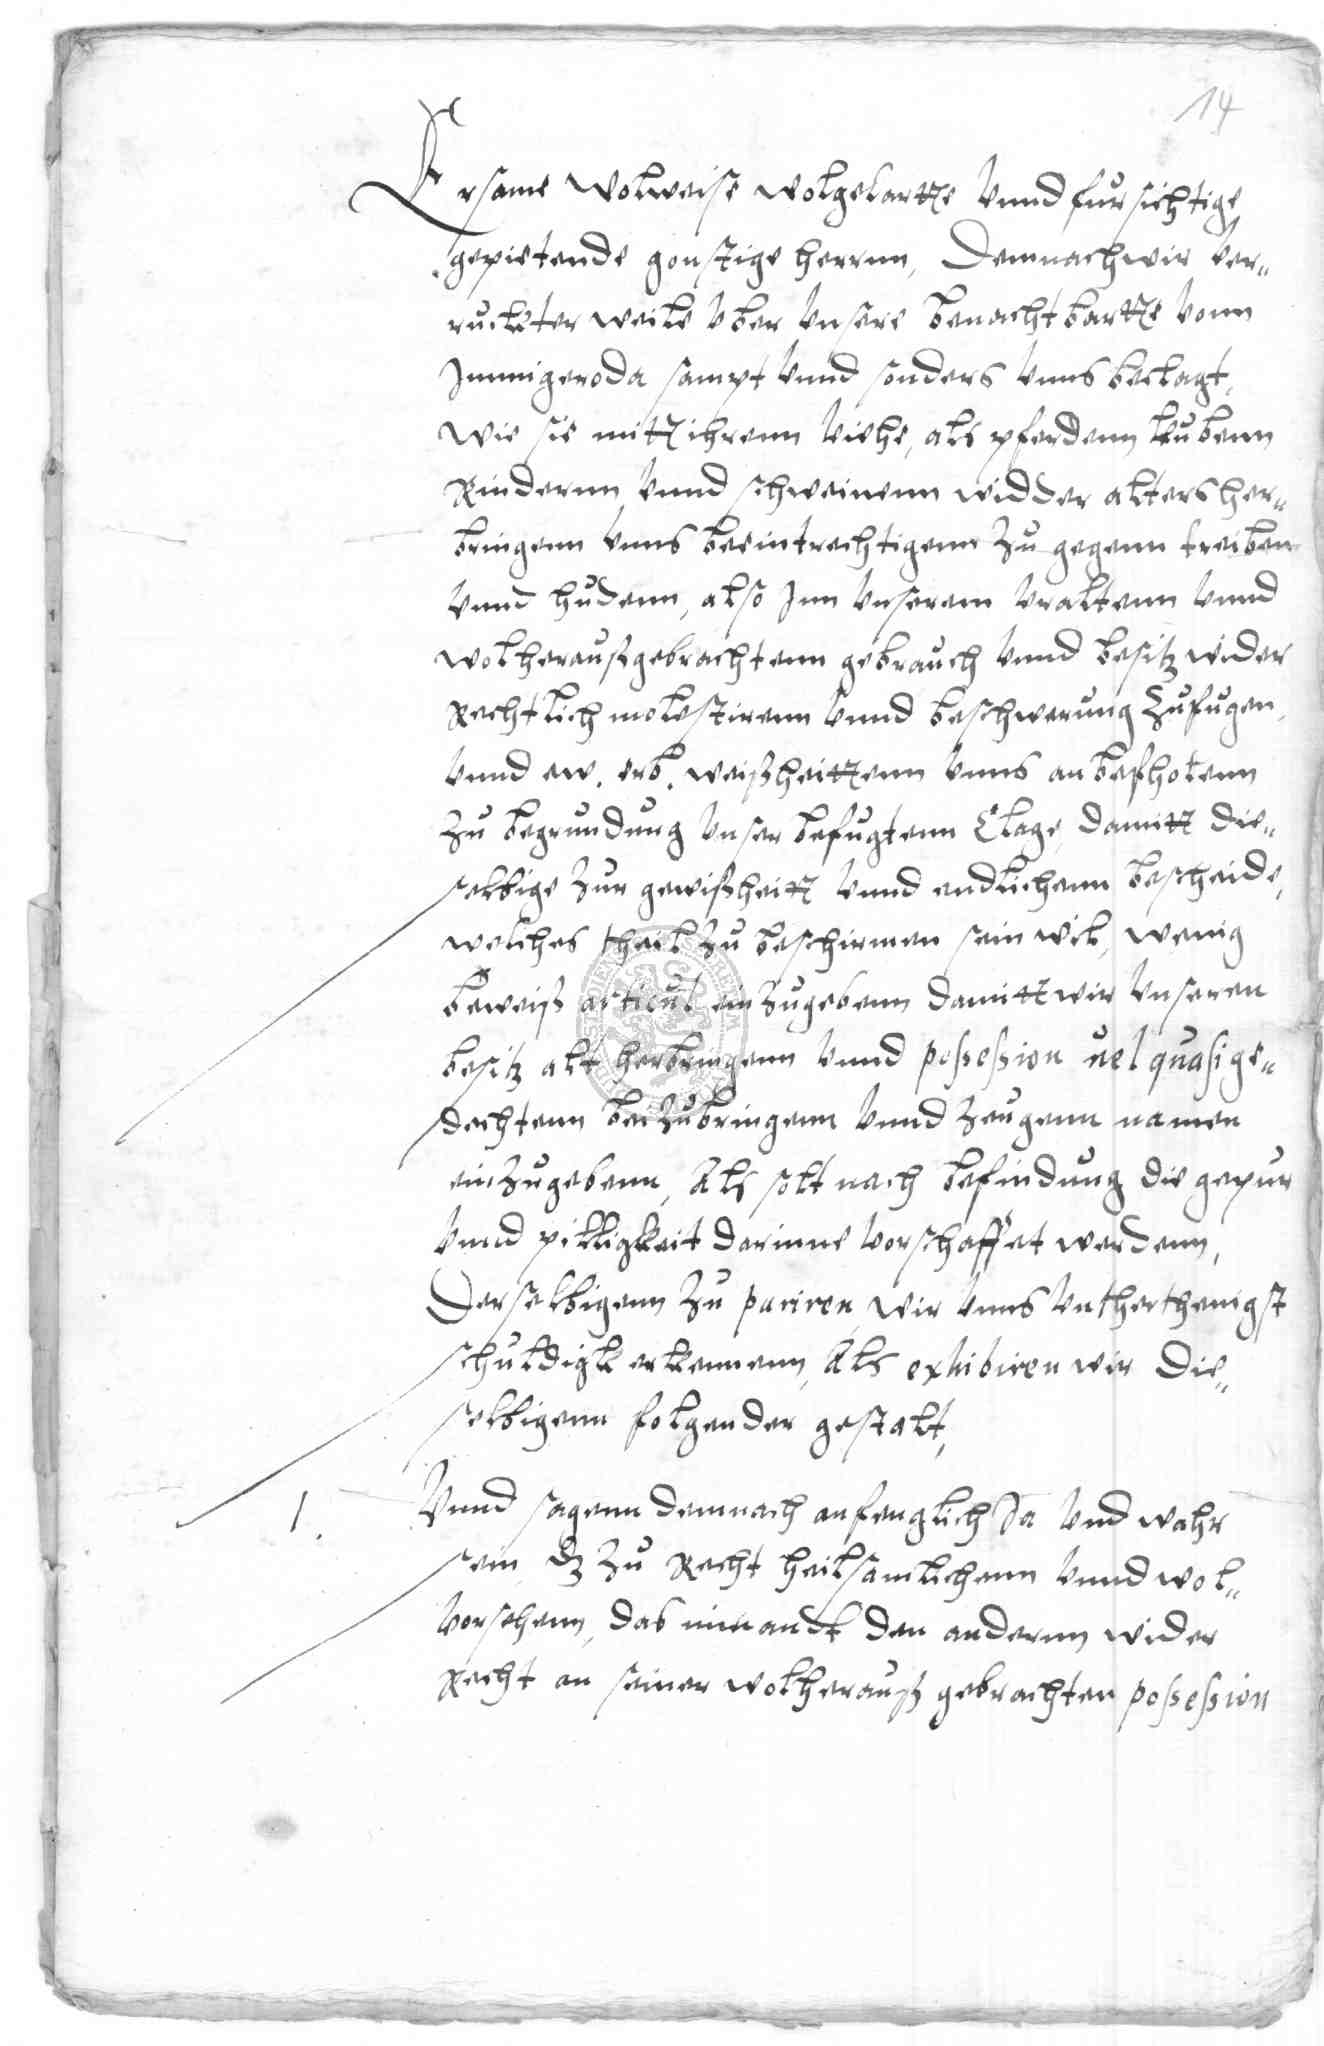 14
Ersame Wolweise wolgelartte Vnnd fursichtige
gepietende gonstige herrnn, Demnach wir ver„
ruckter weile vber vnsere benachtbartte vonn
Immigeroda sampt vnnd sonders vnns beclagt,
wie sie mitt ihrenn viehe, als pferdenn kubenn
Rindernn vnnd schweinenn widder alters her„
bringenn vnns beeintrechtigenn zu gegenn treiben
vnnd hudenn, also Inn vnserem vraltenn vnnd
wolheraußgebrachtenn gebrauch vnnd besitz wider
Rechtlich molestirenn vnnd beschwerung zufugen,
vnnd ew. erb. weißheittenn vnns anbefholenn
zu begrundung vnser befugtenn Clage, damitt die„
selbige zur gewißheitt vnnd endlichenn bescheide,
welches theil zu beschirmen sein wil, wenig
beweiß articul einzugebenn damitt wir vnseren
besitz alt herbringenn vnnd possession uel quasi ge„
dechtenn beizubringenn vnnd zeugenn namen
einzugebenn, Als solt nach befindung die gepur
vnnd pilligkeit darinne vorschaffet werdenn,
Derselbigenn zu pariren, wir vnns vntherthenigst
schuldigk erkennenn, Als exhibiren wir die„
selbigenn folgender gestalt,
1. Vnnd sagenn demnach anfenglich Ja vnd wahr
sein, dz zu Recht heilsamlichenn vnnd wol„
vorsehenn, das nimandt den andernn wider
Recht an seiner wolherauß gebrachten possession